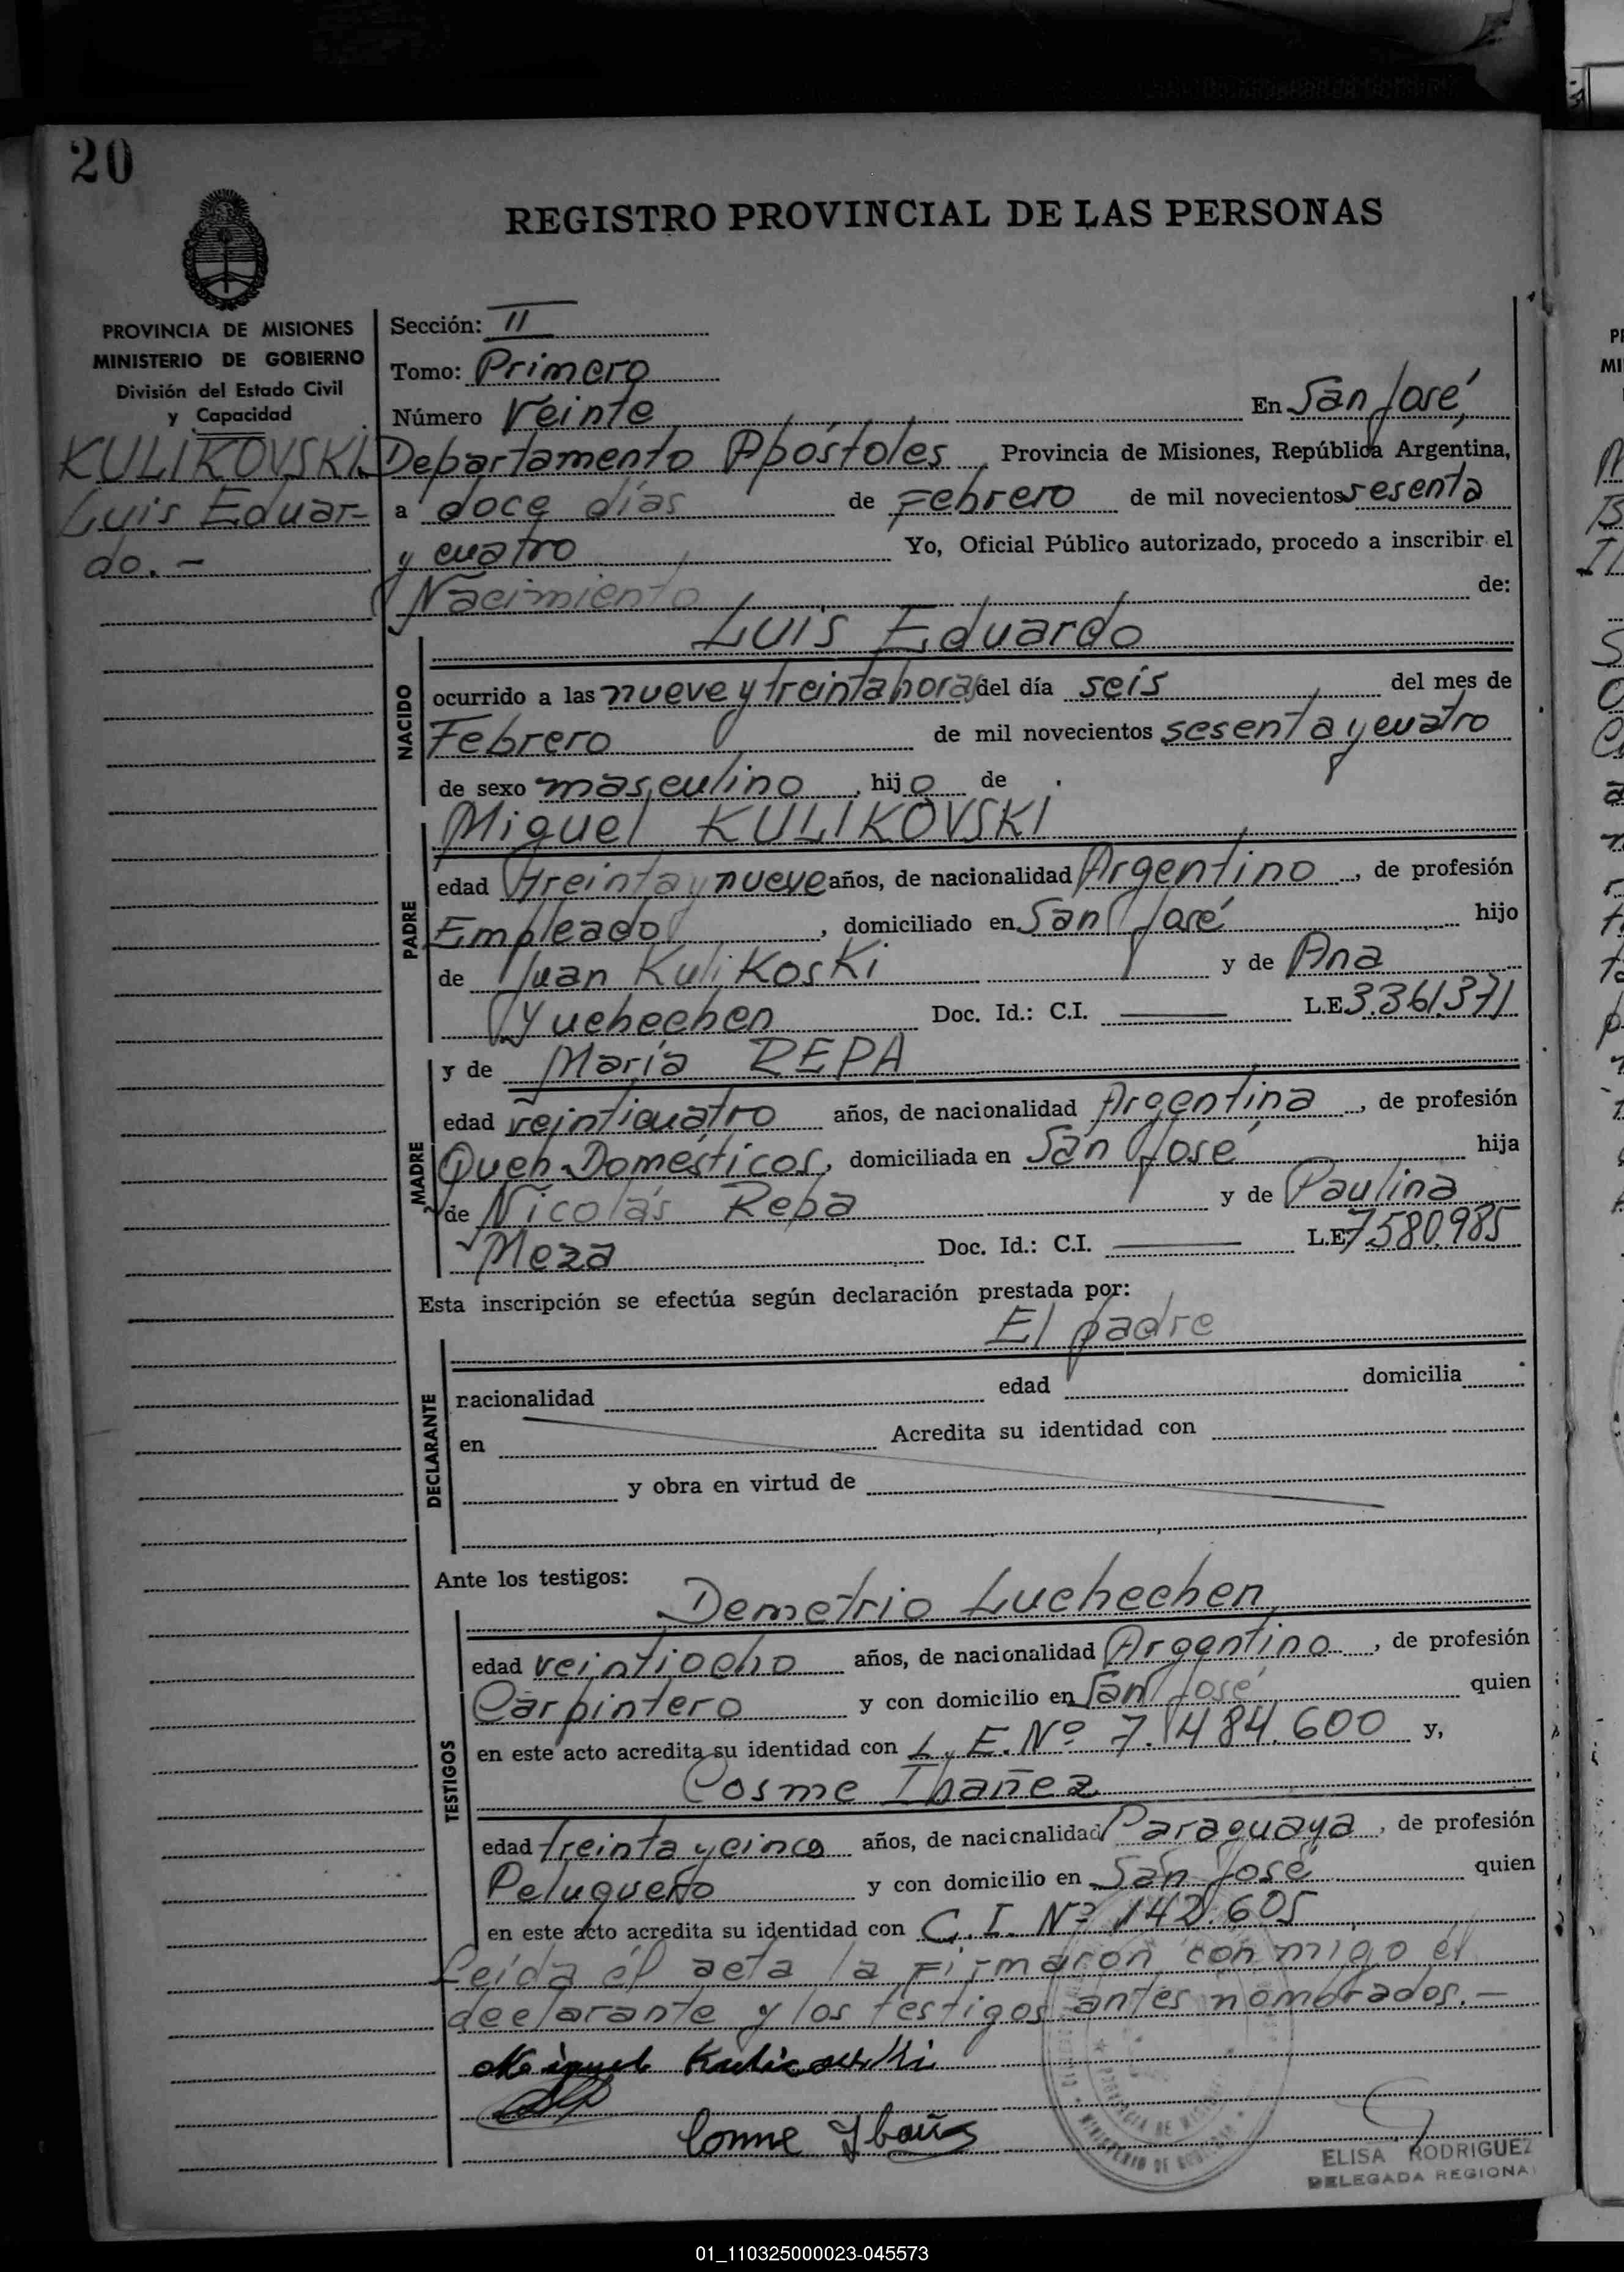 20
REGISTRO PROVINCIAL DE LAS PERSONAS
PROVINCIA DE MISIONES
MINISTERIO DE GOBIERNO
División del Estado Civil
y Capacidad
KULIKOVSKI
Luis Eduar-
do.-
Sección: II
Tomo: Primero
Número Veinte En San José,
Departamento Apóstoles, Provincia de Misiones, República Argentina,
a doce días de Febrero de mil novecientos sesenta
y cuatro Yo, Oficial Público autorizado, procedo a inscribir el
Nacimiento de:
Luis Eduardo
NACIDO
ocurrido a las nueve y treinta horas del día seis del mes de
Febrero de mil novecientos sesenta y cuatro
de sexo masculino, hijo de
PADRE
Miguel KULIKOVSKI
edad treinta y nueve años, de nacionalidad Argentino, de profesión
Empleado, domiciliado en San José hijo
de Juan Kulikoski y de Ana
Yuchechen Doc. Id.: C.I. L.E 3.361.371
MADRE
y de María REPA
edad veinticuatro años, de nacionalidad Argentina, de profesión
Queh. Domésticos, domiciliada en San José hija
de Nicolás Repa y de Paulina
Meza Doc. Id.: C.I. L.E 7580.985
Esta inscripción se efectúa según declaración prestada por:
El padre
DECLARANTE
nacionalidad edad domicilia
en Acredita su identidad con
y obra en virtud de
Ante los testigos:
TESTIGOS
Demetrio Luchechen
edad veintiocho años, de nacionalidad Argentino, de profesión
Carpintero y con domicilio en San José quien
en este acto acredita su identidad con L.E. Nº 7.484.600 y,
Cosme Ibañez
edad treinta y cinco años, de nacionalidad Paraguaya, de profesión
Peluquero y con domicilio en San José quien
en este acto acredita su identidad con C.I. Nº 142.605
Leída el acta la firmaron con migo el
declarante y los testigos antes nombrados.-
Miguel Kulicowski
Cosme Ybañes
ELISA RODRIGUEZ
DELEGADA REGIONAL
01_110325000023-045573